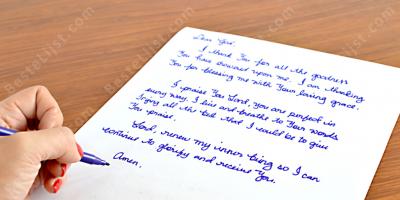 Dear God,
I thank You for all the goodness
You have showed upon me. I am thanking
You for blessing me with Your loving grace.
I praise You Lord, You are perfect in
every way. I live and breathe to Your words
Trying all the best that I could be to give
You praise.
Lord, renew my inner being so I can
continue to glorify and receive You.
Amen.